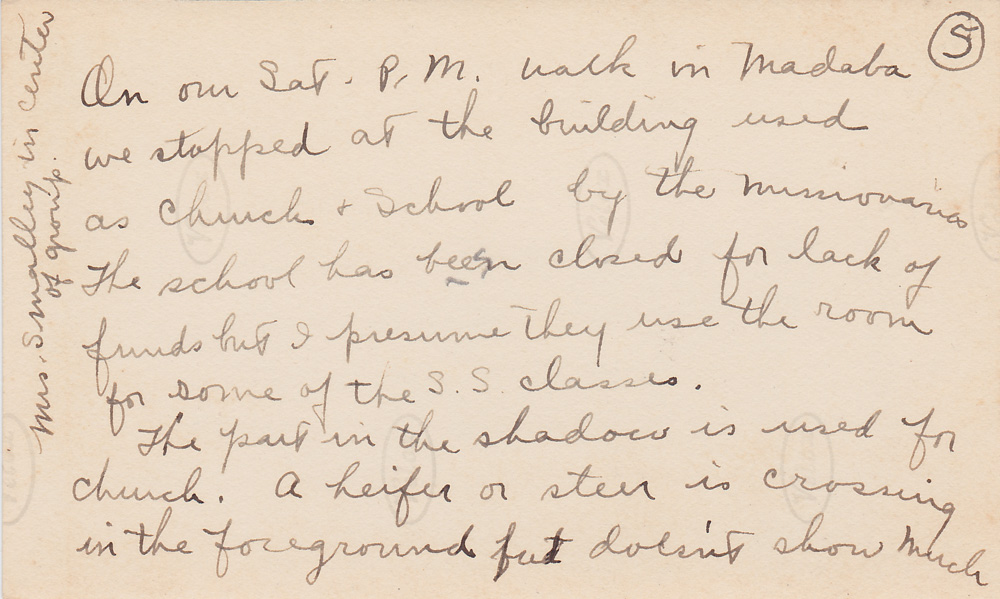 5
On our Sat. P.M. walk in Madaba
we stopped at the building used
as Church + School by the missionaries
The school has been closed for lack of
funds but I presume they use the room
for some of the S.S. classes.
The part in the shadow is used for
church. A heifer or steer is crossing
in the foreground but doesn't show much
Mrs. Smalley in center
of group.